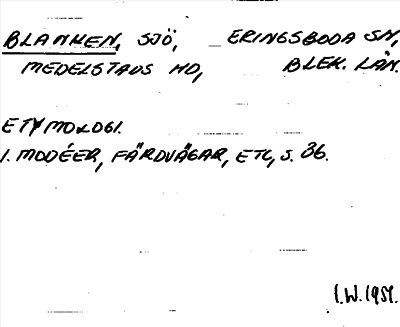 BLANKEN, SJÖ, ERINGSBODA SN,
MEDELSTADS HD, BLEK. LÄN.
ETYMOLOGI.
I. MODÉER, FÄRDVÄGAR, ETC, S. 36.
I.W. 1951.